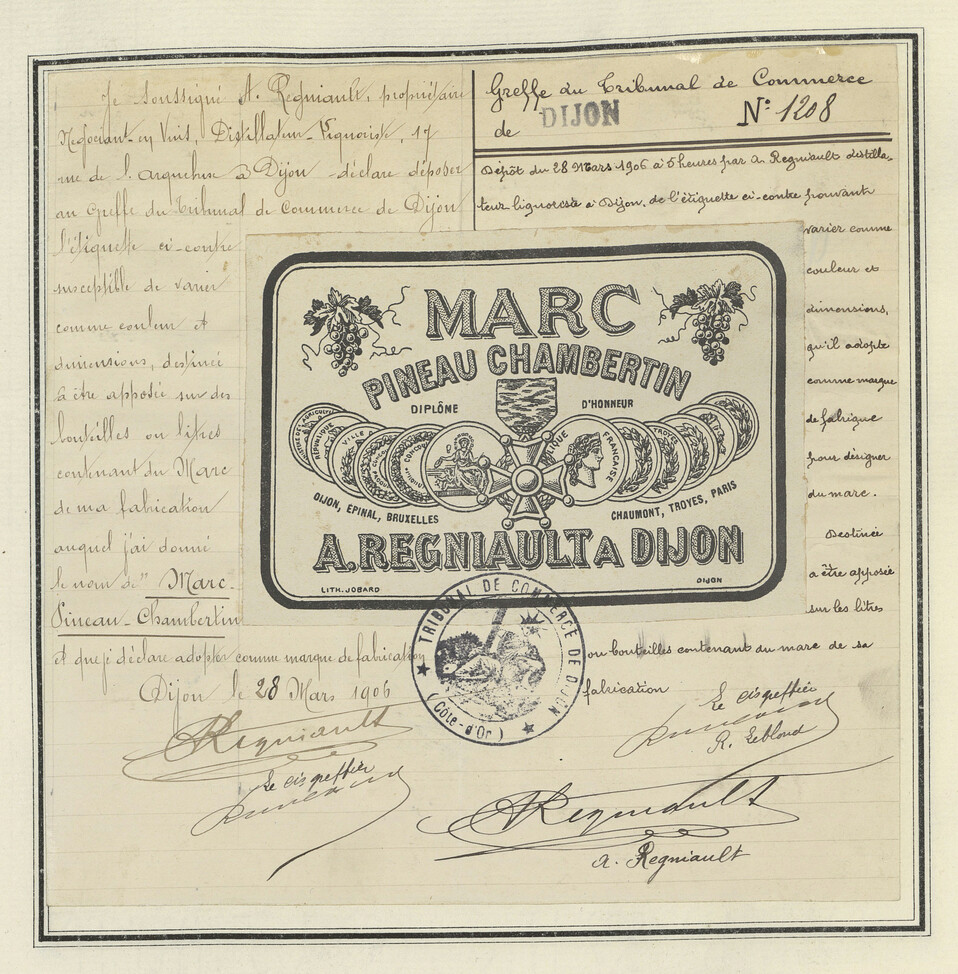 Je soussigné A. Regniault, propriétaire
Négociant en Vins, Distillateur-Liquoriste, 17
rue de l'arquebuse à Dijon déclare déposer
au Greffe du Tribunal de Commerce de Dijon
l'étiquette ci-contre
susceptible de varier
comme couleur et
dimensions, destinée
à être apposée sur des
bouteilles ou litres
contenant du Marc
de ma fabrication
auquel j'ai donné
le nom de "Marc-
Pineau-Chambertin
et que je déclare adopter comme marque de fabrication
Dijon le 28 Mars 1906
A Regniault
Le
Greffe du Tribunal de Commerce
de DIJON
N° 1208
Dépôt du 28 Mars 1906 à 5 heures par A. Regniault distilla-
teur liquoriste à Dijon, de l'étiquette ci-contre pouvant
varier comme
couleur et
dimensions,
qu'il adopte
comme marque
de fabrique
pour désigner
du marc.
Destinée
a être apposée
sur les litres
ou bouteilles contenant du marc de sa
fabrication
Le
R. Leblond
A Regniault
A. Regniault
MARC
PINEAU CHAMBERTIN
DIPLÔME D'HONNEUR
RÉPUBLIQUE
VILLE
FRANÇAISE
TROYES
DIJON, EPINAL, BRUXELLES
CHAUMONT, TROYES, PARIS
A. REGNIAULT A DIJON
LITH. JOBARD
DIJON
TRIBUNAL DE COMMERCE DE DIJON
(Côte-d'Or)